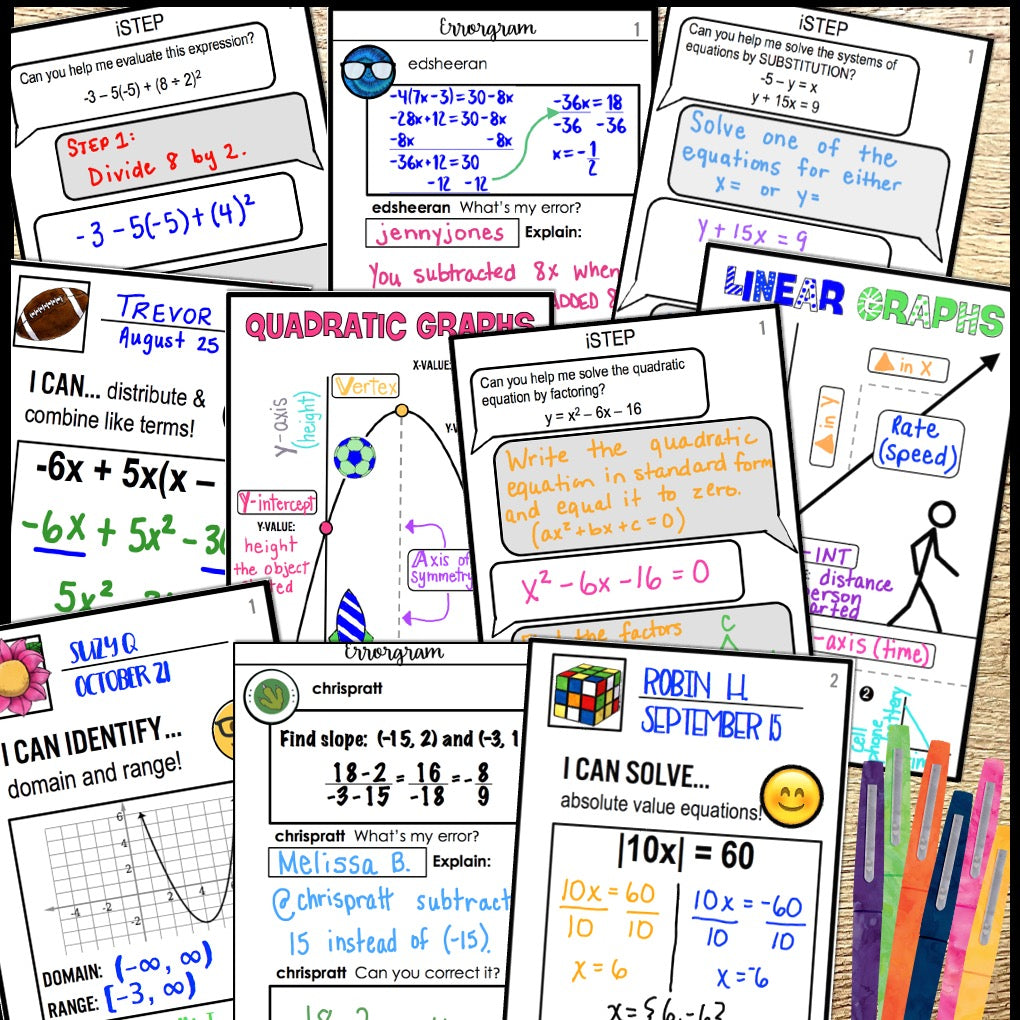 iSTEP
Can you help me evaluate this expression?
-3 – 5(-5) + (8 ÷ 2)²
STEP 1:
Divide 8 by 2.
-3 - 5(-5) + (4)²
Errorgram
1
edsheeran
-4(7x-3) = 30-8x
-28x+12 = 30-8x
-8x -8x
-36x+12 = 30
-12 -12
-36x = 18
-36 -36
x = -1/2
edsheeran What's my error?
jennyjones Explain:
You subtracted 8x when
iSTEP
1
Can you help me solve the systems of
equations by SUBSTITUTION?
-5 – y = x
y + 15x = 9
Solve one of the
equations for either
x = or y =
y + 15x = 9
TREVOR
August 25
I CAN... distribute &
combine like terms!
-6x + 5x(x –
-6x + 5x² -
5x²
QUADRATIC GRAPHS
X-VALUE:
Vertex
y-axis
(height)
Y-intercept
Y-VALUE:
height
the object
Axis of
symmetry
iSTEP
1
Can you help me solve the quadratic
equation by factoring?
y = x² – 6x – 16
Write the quadratic
equation in standard form
and equal it to zero.
(ax² + bx + c = 0)
x² - 6x - 16 = 0
the factors
C
LINEAR GRAPHS
▲ in X
▲ in y
Rate
(speed)
-INT
distance
-axis (time)
2
cell
phone
1
SUZY Q
OCTOBER 21
I CAN IDENTIFY...
domain and range!
6
4
2
-4 -2 2 4
-2
DOMAIN: (-∞, ∞)
RANGE: [-3, ∞)
Errorgram
chrispratt
Find slope: (-15, 2) and (-3, 1
18-2/-3-15 = 16/-18 = -8/9
chrispratt What's my error?
Melissa B. Explain:
@chrispratt subtract
15 instead of (-15).
chrispratt Can you correct it?
2
ROBIN H.
SEPTEMBER 15
I CAN SOLVE...
absolute value equations!
|10x| = 60
10x = 60
10 10
x = 6
10x = -60
10 10
x = -6
x = {6, -6}